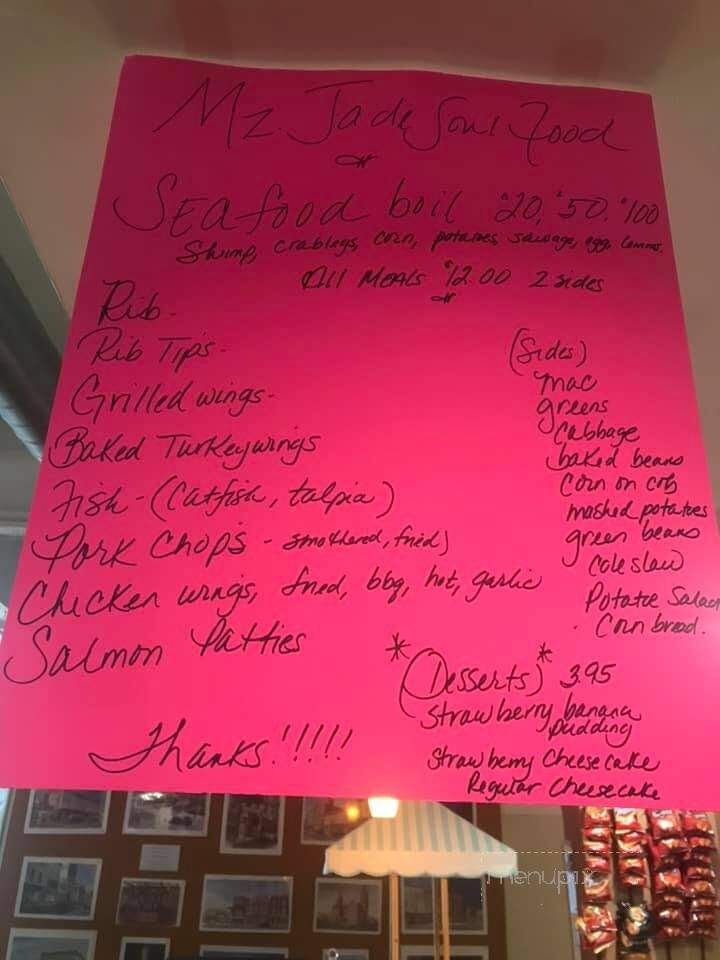 Mz. Jade Soul Food
Seafood boil $20, $50, $100
Shrimp, crablegs, corn, potatoes, sausage, egg, lemons.
All Meals $12.00 2 sides
Rib-
Rib Tips-
Grilled wings-
Baked Turkeywings
Fish-(Catfish, talpia)
Pork Chops - smothered, fried)
Chicken wings, fried, bbq, hot, garlic
Salmon Patties
Thanks!!!!!!
(Sides)
mac
greens
Cabbage
baked beans
Corn on cob
mashed potatoes
green beans
Cole slaw
Potatoe Salad
Corn bread.
*(Desserts)* 3.95
Strawberry banana
Pudding
Strawberry Cheesecake
Regular Cheesecake
menupix